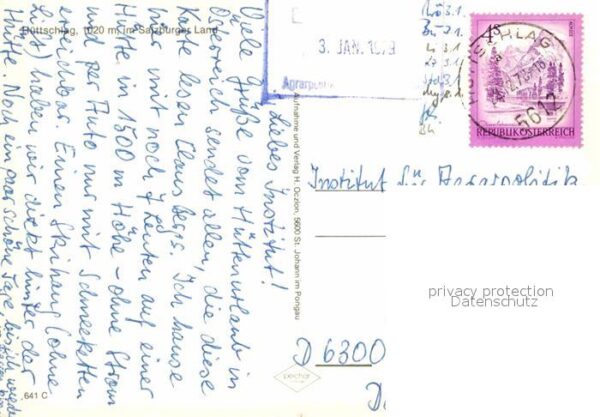 Hüttschlag, 1020 m, im Salzburger Land
Liebes Institut!
Viele Grüße vom Hüttenurlaub in
Österreich sendet allen, die diese
Karte lesen Claus. Ich hause
hier mit noch 7 Leuten auf einer
Hütte in 1500 m Höhe - ohne Strom
und per Auto nur mit Schneeketten
erreichbar. Einen Skihang (ohne
Lift) haben wir direkt hinter der
Hütte. Noch ein paar schöne Tage
641 C
Aufnahme und Verlag H. Oczlon, 5600 St. Johann im Pongau
3. JAN. 1979
Agrarpolitik
HÜTTSCHLAG
5612
S4
REPUBLIK ÖSTERREICH
Institut für Agrarpolitik
privacy protection
Datenschutz
D 6300